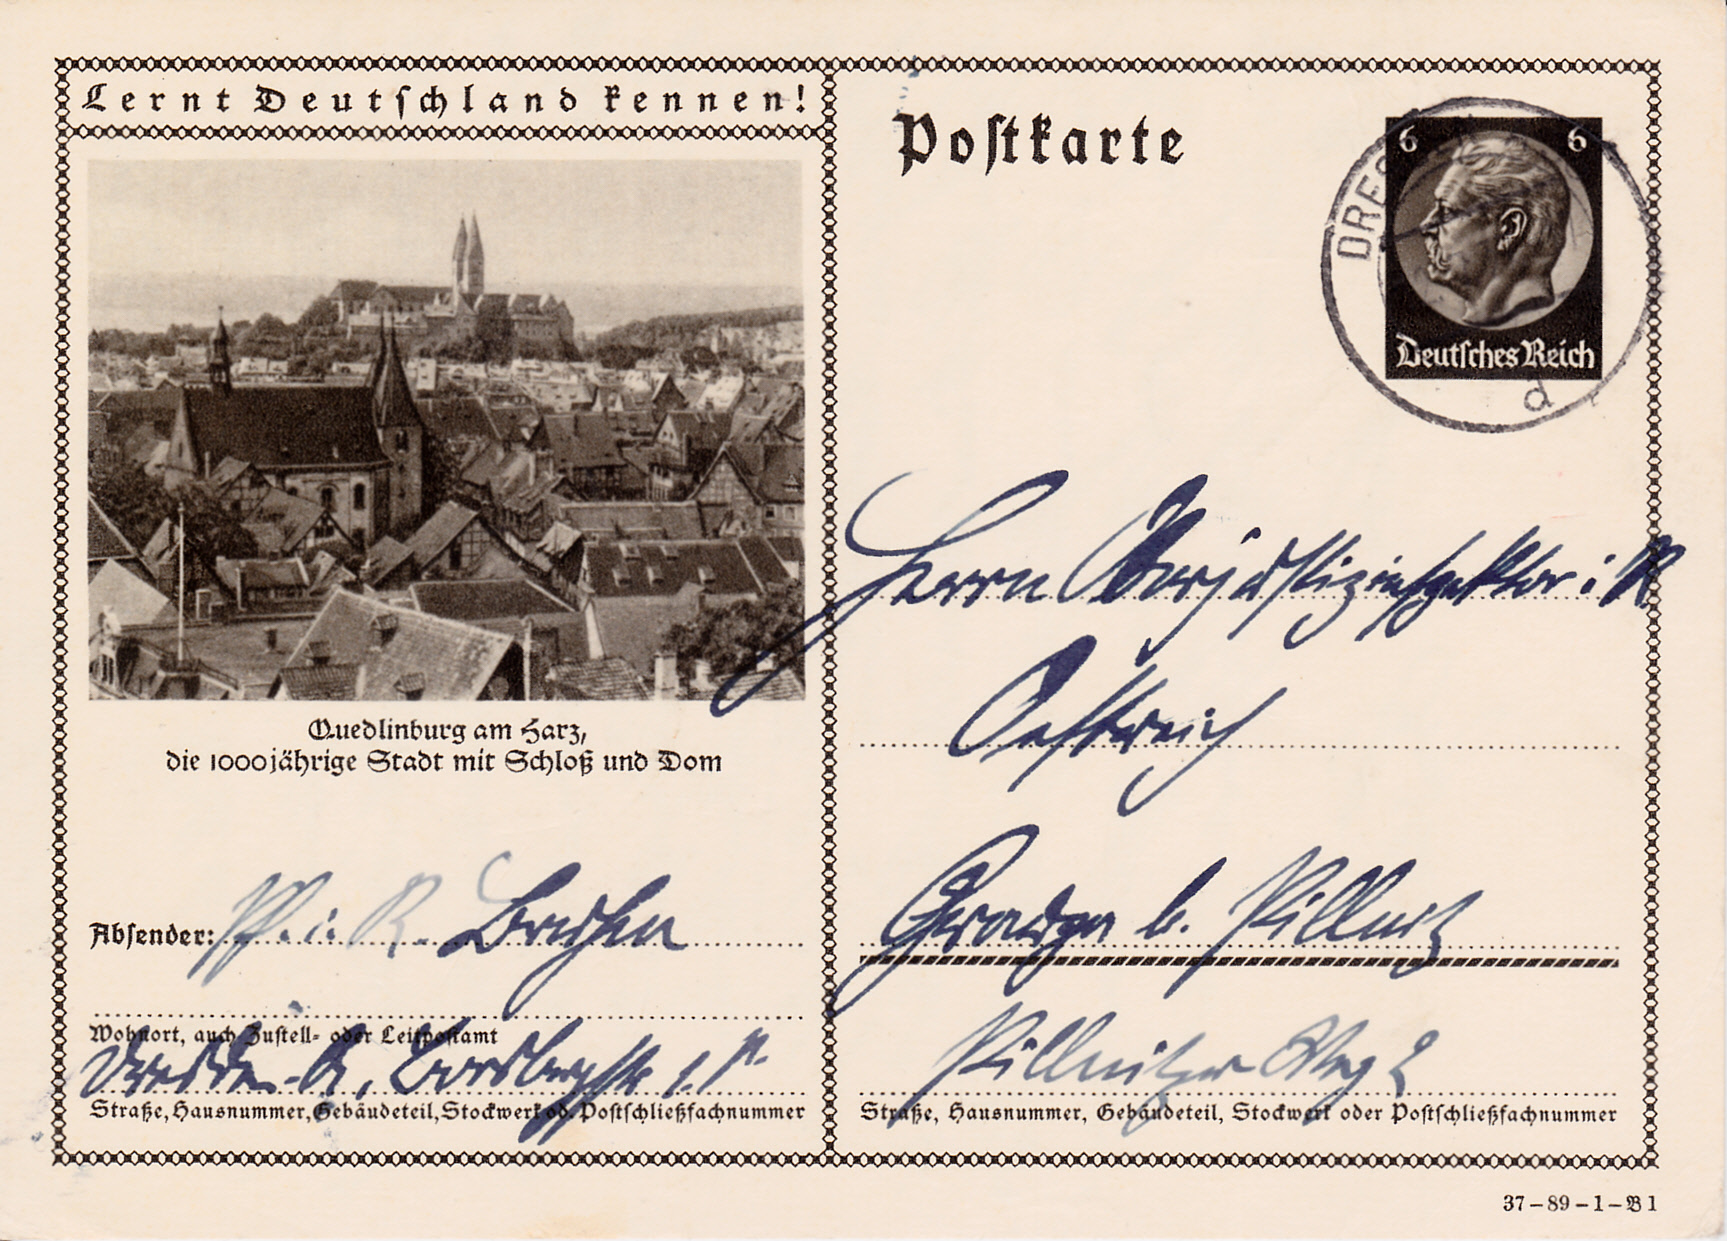 Lernt Deutschland kennen!
Quedlinburg am Harz,
die 1000jährige Stadt mit Schloß und Dom
Absender: Pf. i. R.
Wohnort, auch Zustell- oder Leitpostamt
Dresden-A.
Straße, Hausnummer, Gebäudeteil, Stockwerk od. Postschließfachnummer
Postkarte
6 6
Deutsches Reich
DRES
d
Herrn Oberjustizinspektor i. R.
Oestreich
b. Pillnitz
Pillnitzer Weg 2
Straße, Hausnummer, Gebäudeteil, Stockwerk oder Postschließfachnummer
37-89-1-B1